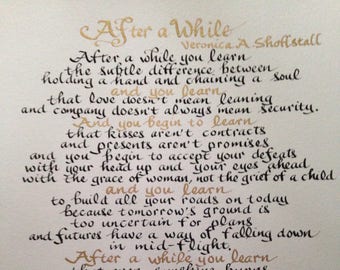 After a While
Veronica A. Shoffstall
After a while you learn
the subtle difference between
holding a hand and chaining a soul
and you learn
that love doesn't mean leaning
and company doesn't always mean security.
And you begin to learn
that kisses aren't contracts
and presents aren't promises
and you begin to accept your defeats
with your head up and your eyes ahead
with the grace of woman, not the grief of a child
and you learn
to build all your roads on today
because tomorrow's ground is
too uncertain for plans
and futures have a way of falling down
in mid-flight.
After a while you learn